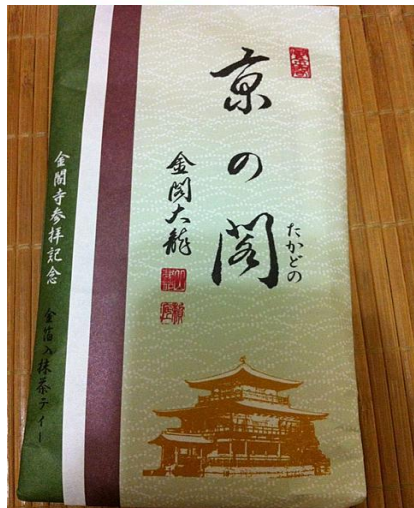 京の閣
たかどの
金閣大龍
金閣寺参拝記念
金箔入抹茶ティー